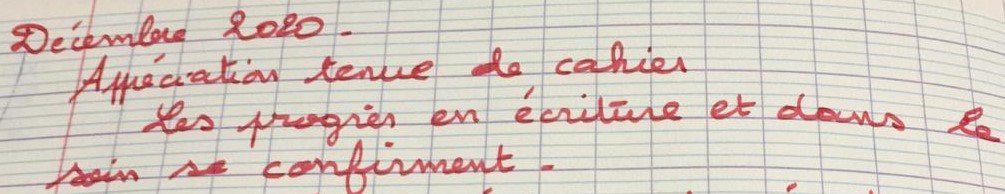 Décembre 2020.
Appréciation tenue de cahier
Les progrès en écriture et dans le
soin se confirment.